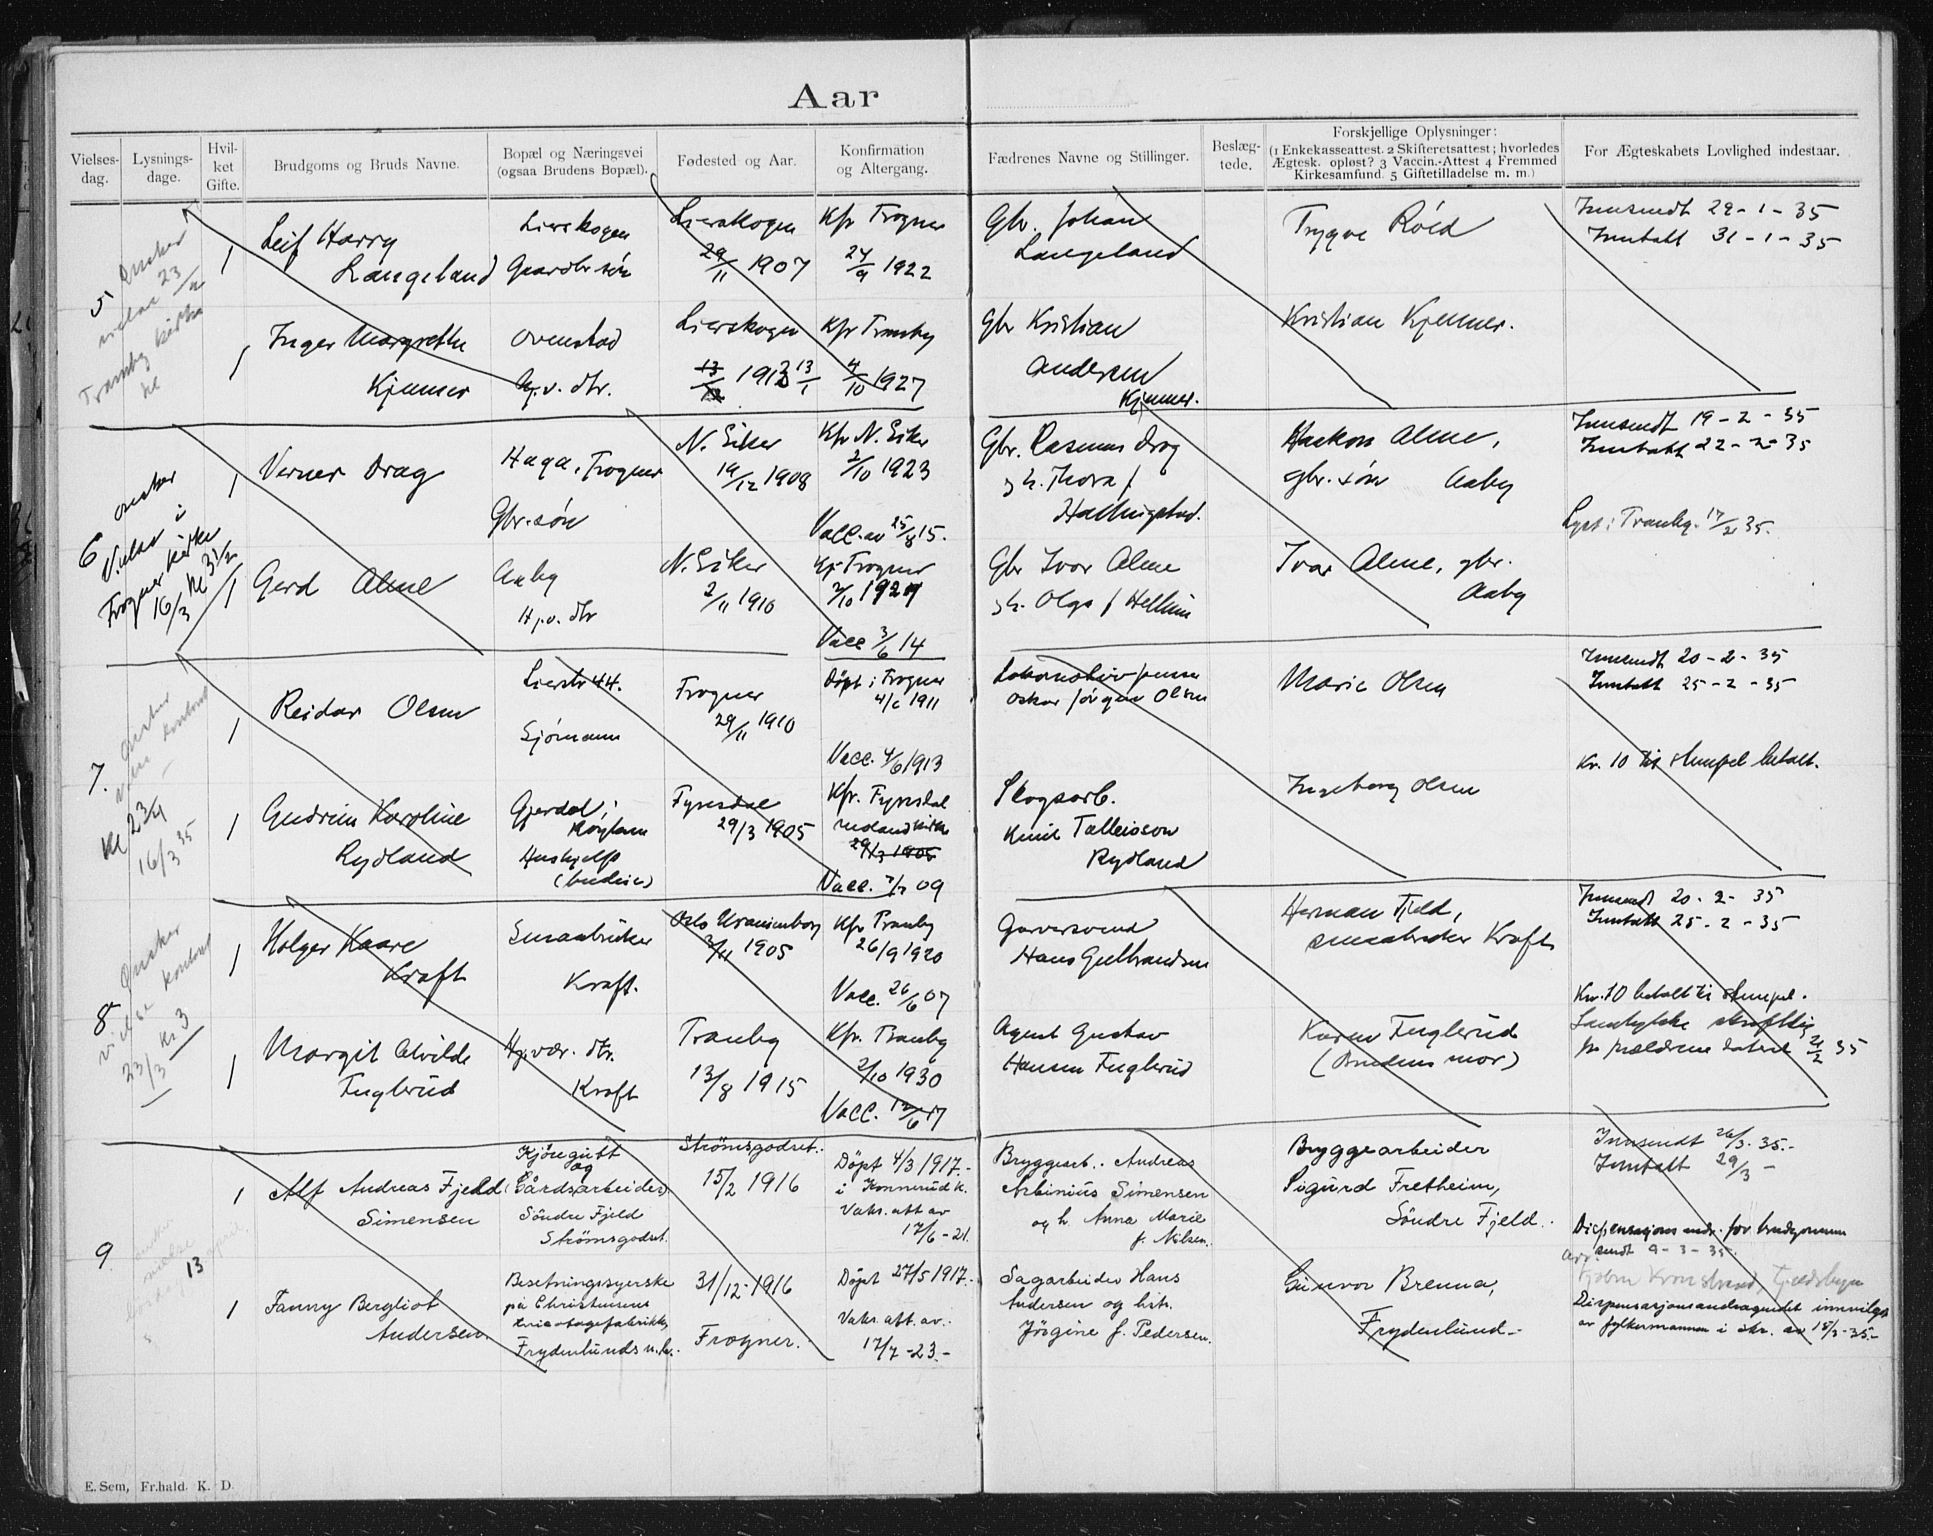 Aar
Vielses-dag.
Lysnings-dage.
Hvil-ket Gifte.
Brudgoms og Bruds Navne.
Bopæl og Næringsvei (ogsaa Brudens Bopæl).
Fødested og Aar.
Konfirmation og Altergang.
Fædrenes Navne og Stillinger.
Beslæg-tede.
Forskjellige Oplysninger:
(1 Enkekasseattest. 2 Skifteretsattest; hvorledes
Ægtesk. opløst? 3 Vaccin.-Attest 4 Fremmed
Kirkesamfund. 5 Giftetilladelse m. m.)
For Ægteskabets Lovlighed indestaar.
5
Ønsker
vielse 23/
Tranby kirke
kl
1
Leif Harry
Langeland
Lierskogen
Gaardbr.søn
Lierskogen
29/11 1907
Kfr Frogner
24/9 1922
Gbr. Johan
Langeland
Trygve Röed
Innsendt 29-1-35
Inntatt 31-1-35
1
Inger Margrethe
Kjemmer
Ovenstad
Hj.v. dtr.
Lierskogen
1913 13/1
Kfr Tranby
4/10 1927
Gbr Kristian
Andersen
Kjemmer.
Kristian Kjemmer.
6
Ønsker
Vielse i
Frogner kirke
16/3 kl 3 1/2
1
Verner Drag
Haga, Frogner
Gbr.søn
N. Eiker
19/12 1908
Kfr N. Eiker
2/10 1923
Vacc. av 25/8 15.
Gbr. Rasmus Drag
g h. Thora f
Haakon Alme,
gbr. søn Aaby
Innsendt 19-2-35
Inntatt 22-2-35
Lyst i Tranby 17/2 35.
1
Gerd Alme
Aaby
Hj.v. dtr
N. Eiker
2/11 1910
Kf Frogner
2/10 1927
Vacc 3/6 14
Gbr Ivar Alme
g h. Olga f Hellum
Ivar Alme, gbr.
Aaby
7.
Ønsker
vielse kontoret
kl 23/4
16/3 35
1
Reidar Olsen
Lierstr 44.
Sjömann
Frogner
29/11 1910
Döpt i Frogner
4/6 1911
Vacc. 4/6 1913
Oskar Jörgen Olsen
Marie Olsen
Innsendt 20-2-35
Inntatt 25-2-35
Kr. 10 til stempel betalt.
1
Gudrun Karoline
Rydland
Gjerdal i
Hushjelp
(budeie)
Fyresdal
29/3 1905
Kfr. Fyresdal
Molandkirke
29/3 1905
Vacc. 09
Skogsarb.
Knut Talleivsson
Rydland
Ingeborg Olsen
8
Ønsker
vielse kontoret
23/3 kl 3
1
Holger Kaare
Kraft
Smaabruker
Kraft.
Oslo Uranienborg
2/11 1905
Kfr Tranby
26/9 1920
Vacc. 26/6 07
Garversvend
Hans Gulbrandsen
Herman Fjeld,
smaabruker Kraft
Innsendt 20-2-35
Inntatt 25-2-35
Kr. 10 betalt til stempel.
Samtykke skriftlig
fr forældrene dateret 21/2 35
1
Margit Alvilde
Fuglerud
Hj.vær. dtr.
Kraft
Tranby
13/8 1915
Kfr. Tranby
2/10 1930
Vacc. 12/6 17
Agent Gustav
Hansen Fuglerud
Karen Fuglerud
(Brudens mor)
9
13
1
Alf Andreas Fjeld
Simensen
Kjöregutt
og
(Gårdsarbeider)
Söndre Fjeld
Strömsgodset.
Strömsgodset.
15/2 1916
Döpt 4/3 1917.-
i Konnerud k.
Vaks. att av
17/6-21.
Bryggearb. Andreas
Arbinius Simensen
og h. Anna Marie
f. Nilsen.
Bryggearbeider
Sigurd Fretheim,
Söndre Fjeld.
Innsendt 26/3. 35.-
Inntatt 29/3 -
Dispensasjons andr. for brudgommen
sendt 9-3-35.
1
Fanny Bergliot
Andersen
Besetningssyerske
på Christensens
trikotagefabrikk,
Frydenlunds
31/12-1916
Frogner.
Döpt 27/5 1917.-
Vaks. att. av.
17/7-23.-
Sagarbeider Hans
Andersen og hstr.
Jörgine f. Pedersen.
Gunvor Brenna,
Frydenlund.-
Dispensasjonsandragendet innvilget
av fylkesmannen i skr. av 15/3-35.-
E. Sem, Fr.hald. K. D.